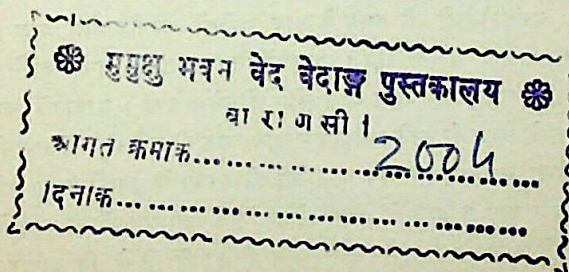 ❀ मुमुक्षु भवन वेद वेदाङ्ग पुस्तकालय ❀
वा रा ण सी ।
आगत क्रमाक........................2004............
दिनाक........................................